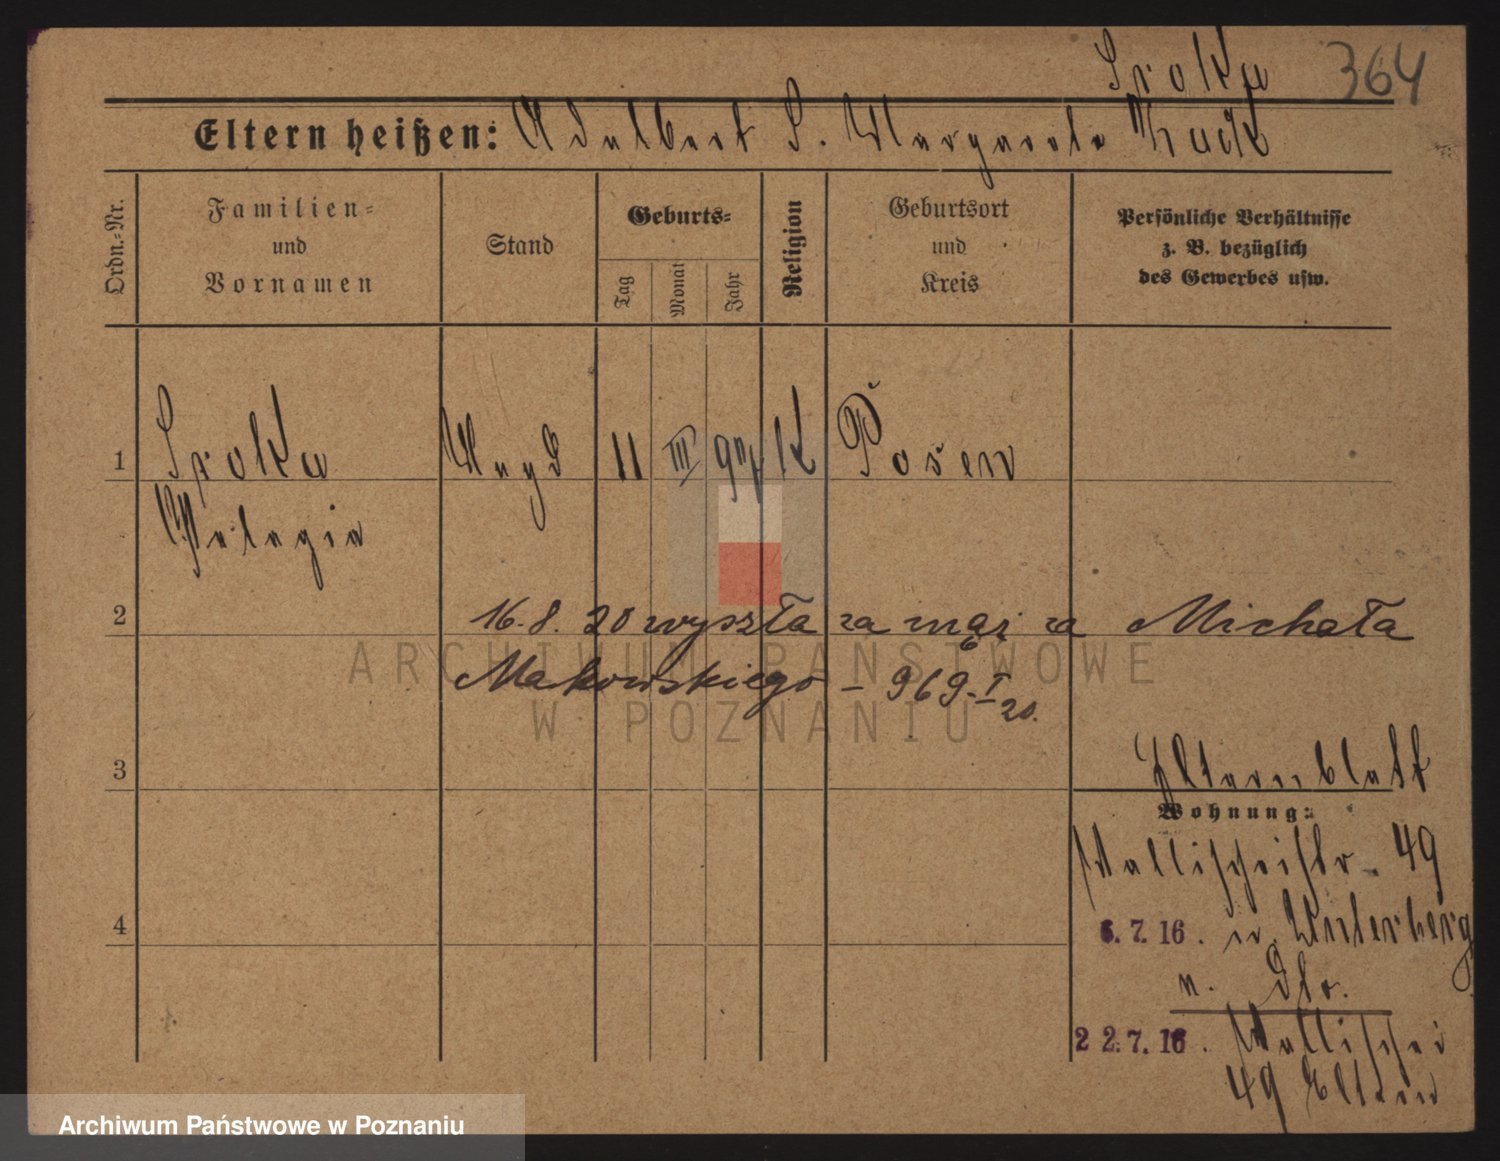 Sroka 364
Eltern heißen: Adalbert S. Margarete Kuck
Ordn.-Nr.
Familien-
und
Vornamen
Stand
Geburts-
Tag
Monat
Jahr
Religion
Geburtsort
und
Kreis
Persönliche Verhältnisse
z. B. bezüglich
des Gewerbes usw.
1 Sroka Magd 11 III 97 K Posen
Pelagia
2 16.8.20 wyszła za mąż za Michała
Makowskiego – 969. I 20.
3 Elternblatt
Wohnung:
Wallischeistr. 49
4 6.7.16. n. Winterberg
n. dto.
22.7.16. Wallischei
49 Eltern
ARCHIWUM PAŃSTWOWE
W POZNANIU
Archiwum Państwowe w Poznaniu